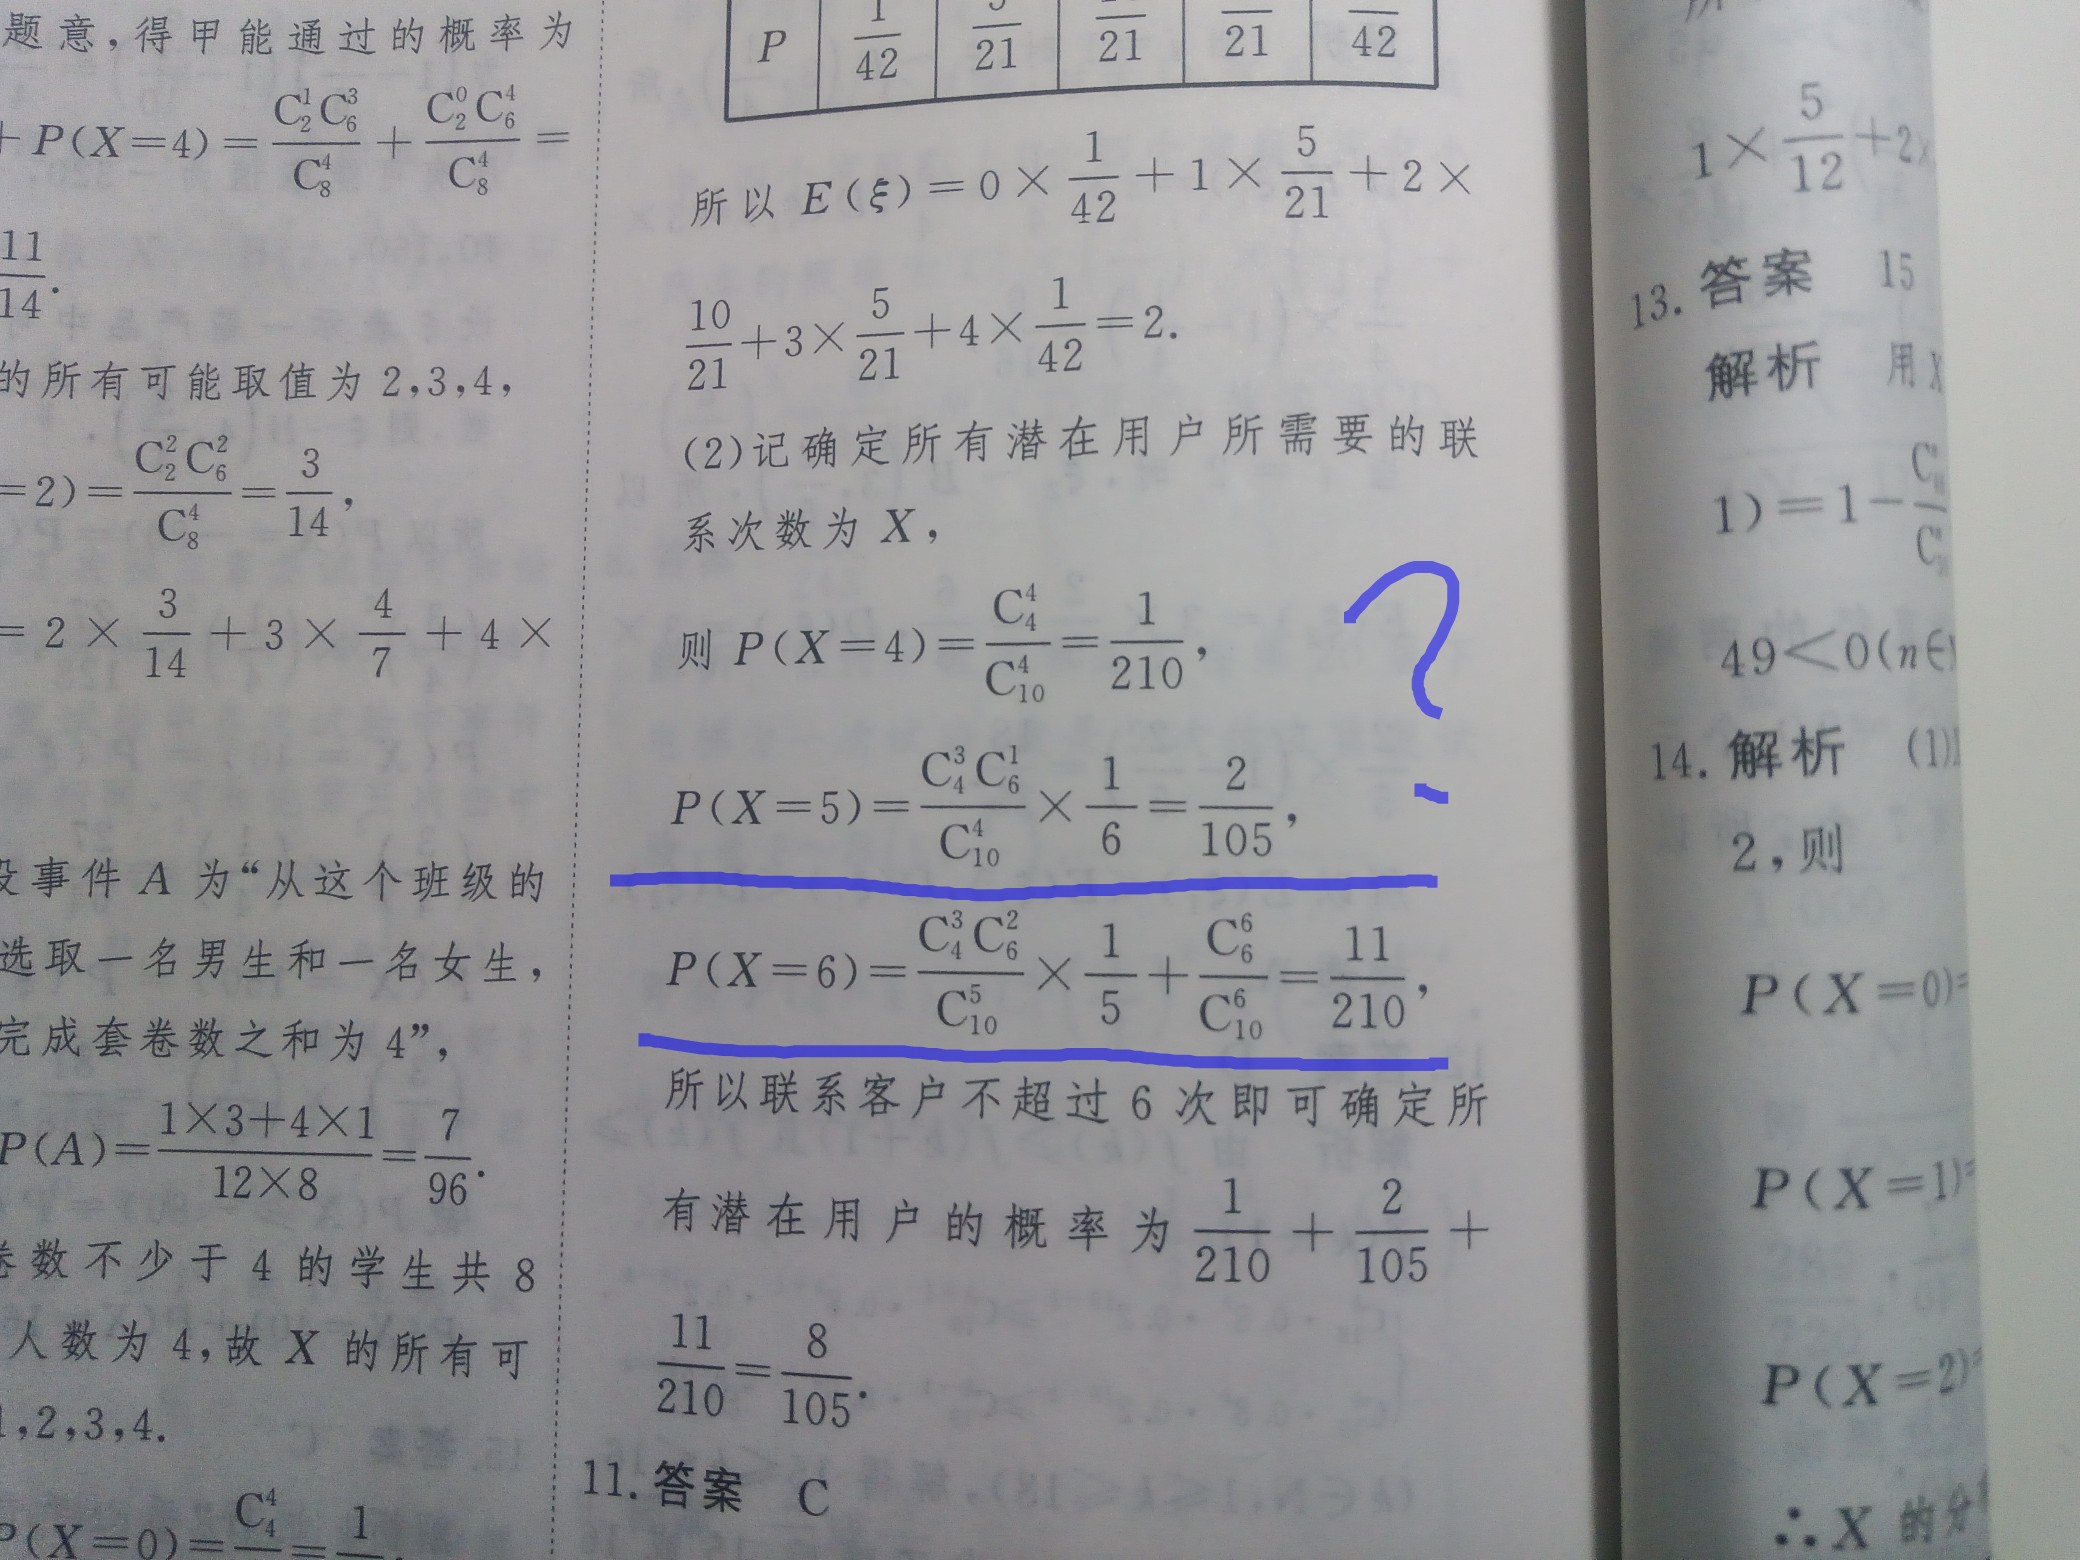 题意,得甲能通过的概率为
+P(X=4)=\frac{C_2^1C_6^3}{C_8^4}+\frac{C_2^0C_6^4}{C_8^4}=
\frac{11}{14}.
的所有可能取值为2,3,4,
=2)=\frac{C_2^2C_6^2}{C_8^4}=\frac{3}{14},
=2×\frac{3}{14}+3×\frac{4}{7}+4×
事件A为“从这个班级的
选取一名男生和一名女生,
完成套卷数之和为4”,
P(A)=\frac{1×3+4×1}{12×8}=\frac{7}{96}.
卷数不少于4的学生共8
人数为4,故X的所有可
1,2,3,4.
P(X=0)=\frac{C_4^4}{}=\frac{1}{}
P \frac{}{42} \frac{}{21} \frac{}{21} \frac{}{21} \frac{}{42}
所以E(ξ)=0×\frac{1}{42}+1×\frac{5}{21}+2×
\frac{10}{21}+3×\frac{5}{21}+4×\frac{1}{42}=2.
(2)记确定所有潜在用户所需要的联
系次数为X,
则P(X=4)=\frac{C_4^4}{C_{10}^4}=\frac{1}{210},
?
P(X=5)=\frac{C_4^3C_6^1}{C_{10}^4}×\frac{1}{6}=\frac{2}{105},
P(X=6)=\frac{C_4^3C_6^2}{C_{10}^5}×\frac{1}{5}+\frac{C_6^6}{C_{10}^6}=\frac{11}{210},
所以联系客户不超过6次即可确定所
有潜在用户的概率为\frac{1}{210}+\frac{2}{105}+
\frac{11}{210}=\frac{8}{105}.
11.答案 C
1×\frac{5}{12}+2×
13.答案 15
解析 用X
1)=1-
49<0(n∈
14.解析 (1)
2,则
P(X=0)=
P(X=1)=
P(X=2)=
∴X的分